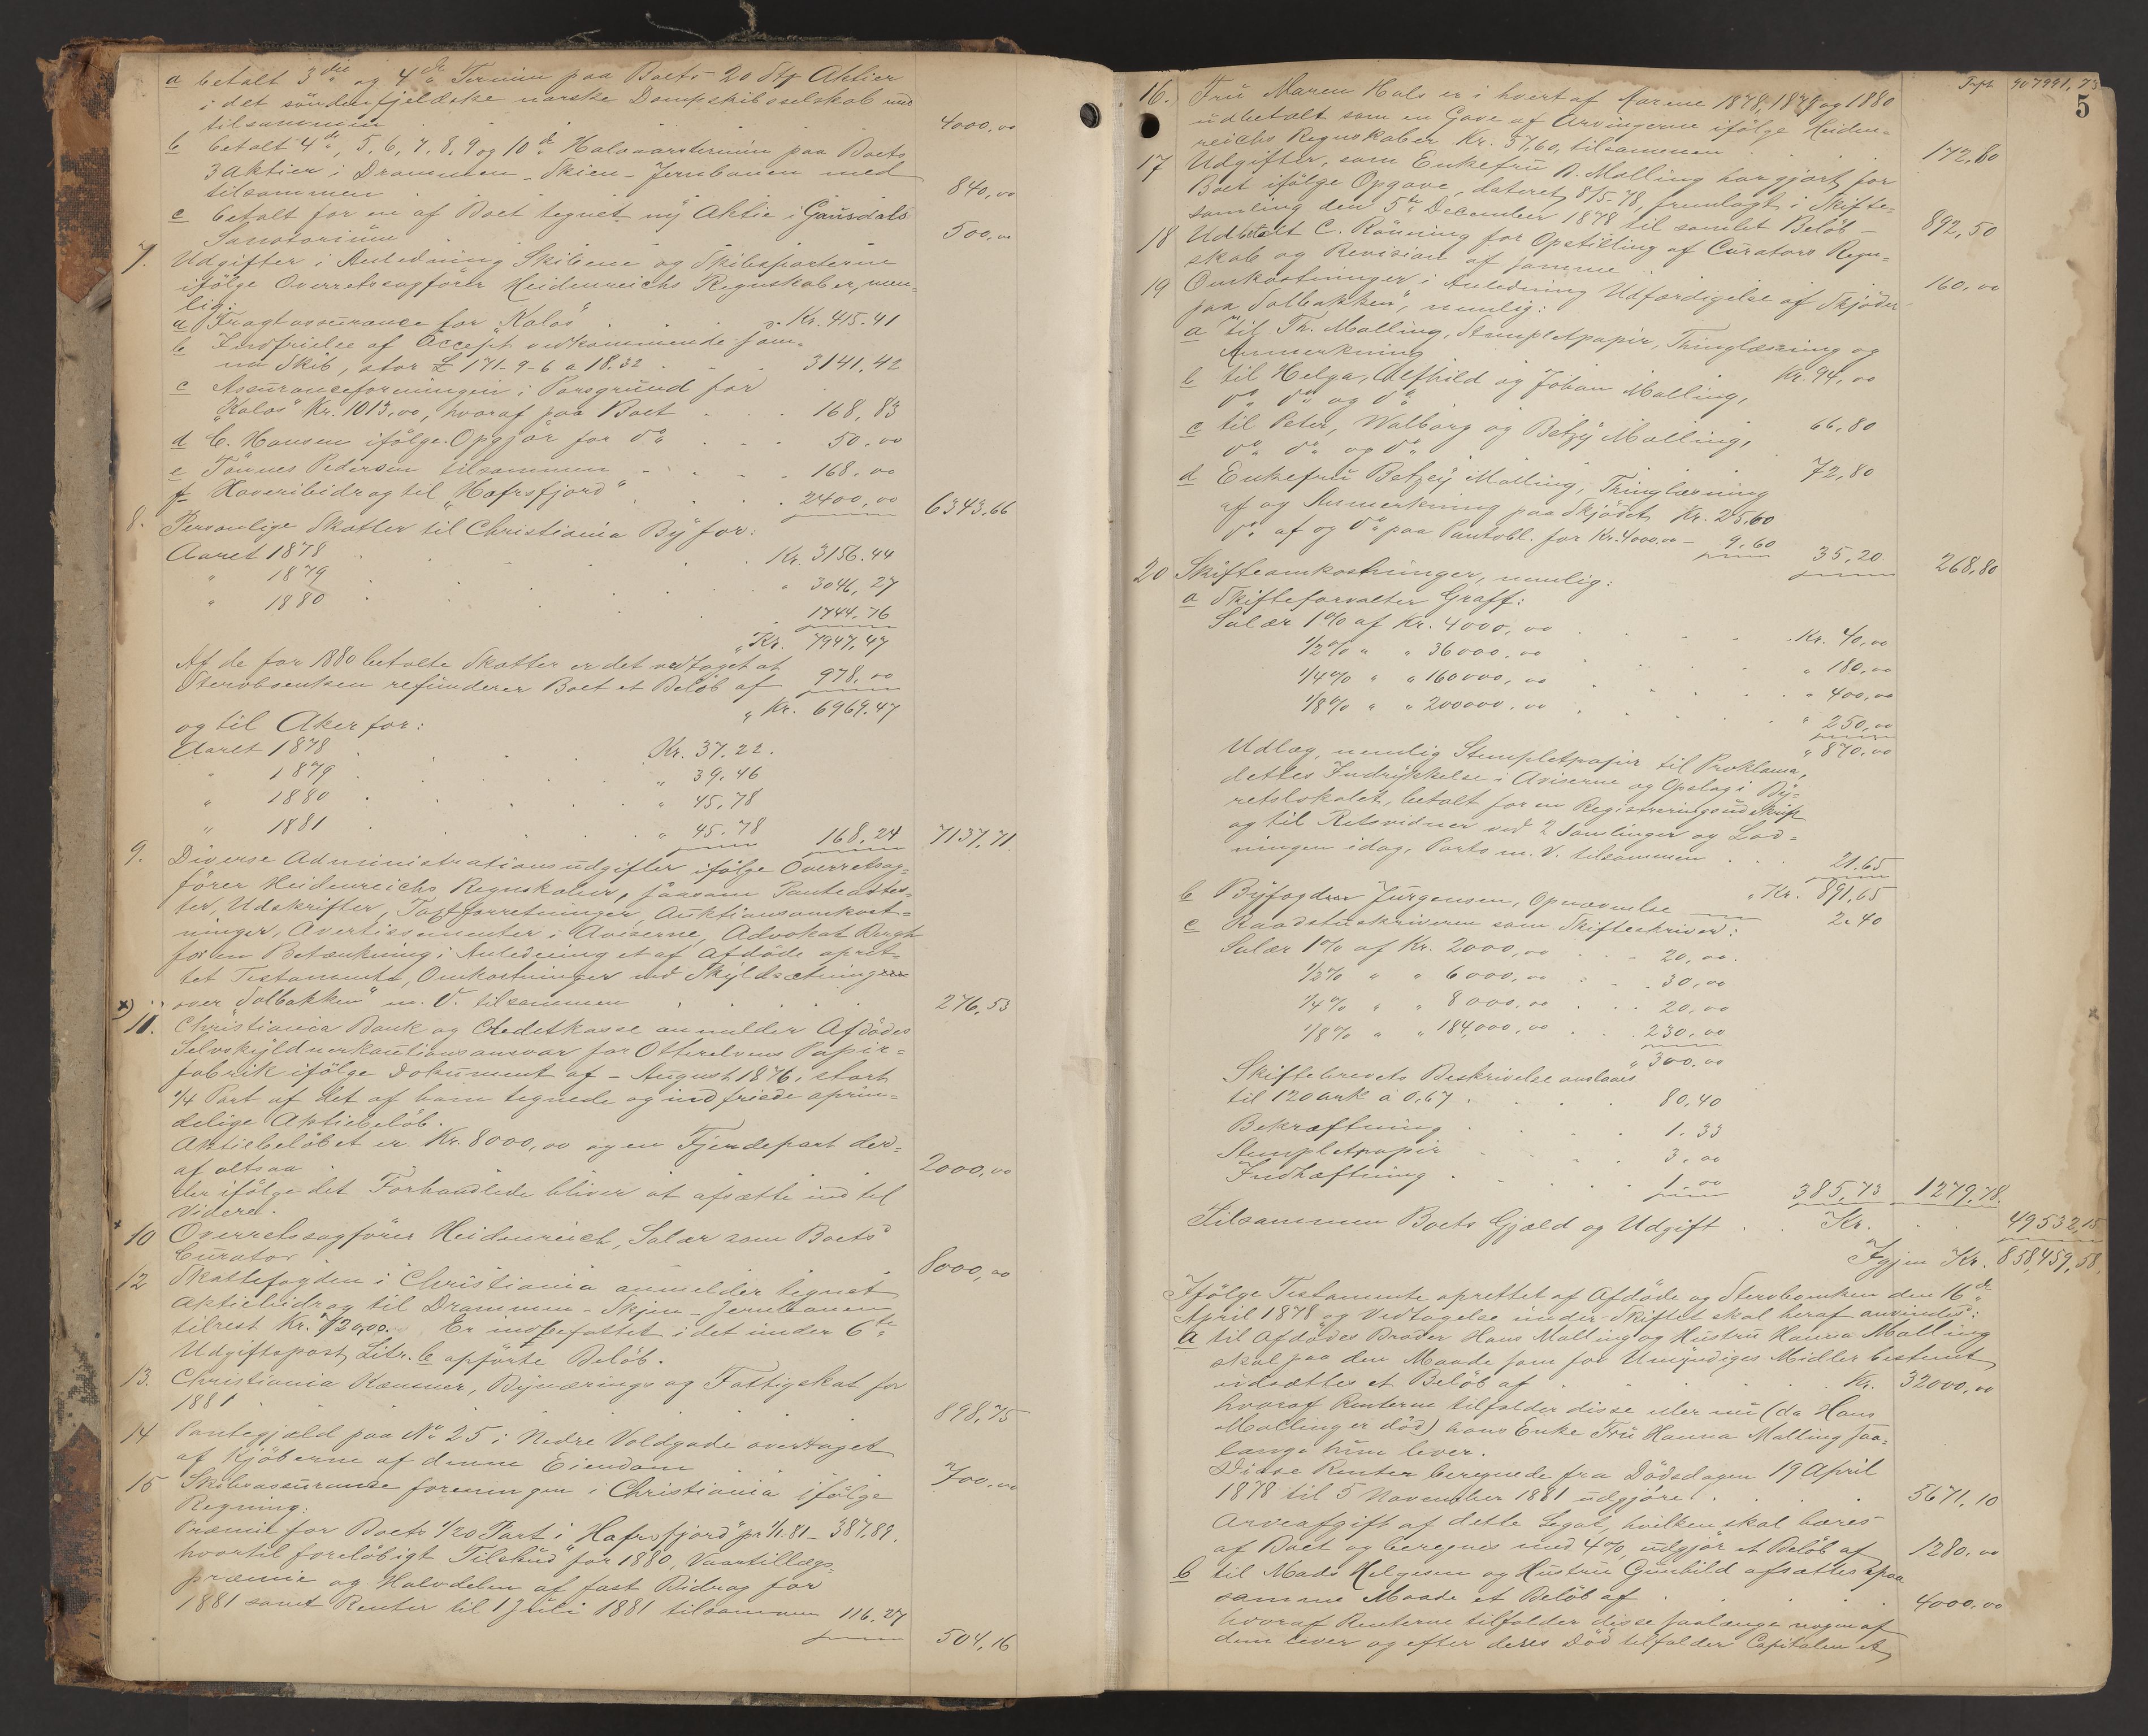 a betalt 3die og 4de Termin paa Boets 20 Stk Aktier
i det søndenfjeldske norske Dampskibsselskab med
tilsammen . . . . 4000,00
b betalt 4de, 5, 6, 7, 8, 9 og 10de Halvaarstermin paa Boets
3 Aktier i Drammen-Skien-Jernbanen med
tilsammen . . . . 840,00
c betalt for en af Boet tegnet ny Aktie i Gausdals
Sanatorium . . . 500,00
7. Udgifter i Anledning Skibene og Skibsparterne
ifølge Overretssagfører Heidenreichs Regnskaber, nem-
lig:
a Fragtassurance for "Kalos" . . . Kr. 415.41
b Indfrielse af Accept vedkommende sam-
me Skib, stor £ 171-9-6 a 18.32 . . . 3141,42
c Assuranceforeningen i Porsgrund for
"Kalos" Kr. 1013,00, hvoraf paa Boet . . . 168,83
d C. Hansen ifølge Opgjør for do . . . 50.00
e Tønnes Pedersen tilsammen . . . 168.00
f Havaribidrag til "Hafrsfjord" . . . 2400,00 6343,66
8. Personlige Skatter til Christiania By for:
Aaret 1878 . . . Kr. 3156.44
" 1879 . . . " 3046,27
" 1880 . . . 1744.76
" Kr. 7947,47
Af de for 1880 betalte Skatter er det vedtaget at
Stervboenken refunderer Boet et Beløb af 978,00
" Kr. 6969.47
og til Aker for:
Aaret 1878 . . . Kr. 37.22.
" 1879 . . . " 39.46
" 1880 . . . " 45,78
" 1881 . . . " 45.78 168.24 7137,71.
9. Diverse Administrationsudgifter ifølge Overretssag-
fører Heidenreichs Regnskaber, saasom Panteattes-
ter, Udskrifter, Taxtforretninger, Auktionsomkost-
ninger, Avertissementer i Aviserne, Advokat Bergh
for en Betænkning i Anledning et af Afdøde opret-
tet Testamente, Omkostninger ved Skyldsætning
over "Solbakken" m. V. tilsammen . . . 276,53
x) 11. Christiania Bank og Creditkasse anmelder Afdødes
Selvskyldnerkautionsansvar for Otterelvens Papir-
fabrik ifølge Dokument af - August 1876, stort
1/4 Part af det af ham tegnede og indfriede oprin-
delige Aktiebeløb.
Aktiebeløbet er Kr. 8000,00 og en Fjerdepart der-
af altsaa . . . 2000,00
der ifølge det Forhandlede bliver at afsætte indtil
Videre.
x 10 Overretssagfører Heidenreich, Salær som Boets
Curator . . . 8000,00
12 Skattefogden i Christiania anmelder tegnet
Aktiebidrag til Drammen-Skjen-Jernbanen
tilrest Kr. 720,00. Er indbefattet i det under 6te
Udgiftspost Litr. b opførte Beløb.
13. Christiania Kæmner, Bynærings og Fattigskat for
1881 . . . 898,75
14 Pantegjæld paa No 25 i Nedre Voldgade overtaget
af Kjøberne af denne Eiendom . . . 700,00
15 Skibsassuranceforeningen i Christiania ifølge
Regning:
Præmie for Boets 1/20 Part i "Hafrsfjord" pr 1/1.81 - 387,89.
hvortil foreløbigt Tilskud for 1880, Vaartillægs-
præmie og Halvdelen af fast Bidrag for
1881 samt Renter til 1 Juli 1881 tilsammen 116.27
504,16
5
Trpt. 907991,73
16. Fru Maren Hals er i hvert af Aarene 1878, 1879 og 1880
udbetalt som en Gave af Arvingerne ifølge Heiden-
reichs Regnskaber Kr. 57,60, tilsammen . . . 172,80
17 Udgifter, som Enkefru B. Malling har gjort for
Boet ifølge Opgave, dateret 8/5-78, fremlagt i Skifte-
samling den 5te December 1878 til samlet Beløb - 892,50
18 Udbetalt C. Rønning for Opstilling af Curators Regn-
skab og Revision af samme . . . 160,00
19 Omkostninger i Anledning Udfærdigelse af Skjøder
paa "Solbakken", nemlig:
a til Th. Malling, Stempletpapir, Thinglæsning og
Anmerkning . . . Kr. 94,00
b til Helga, Alfhild og Johan Malling,
do do og do . . . 66.80
c til Peter, Walborg og Betzy Malling,
do do og do . . . 72,80
d Enkefru Betzey Malling, Thinglæsning
af og Anmerkning paa Skjødet Kr. 25.60
do af og do paa Pantobl. for Kr. 4000.00 - 9.60 35,20 268,80
20 Skifteomkostninger, nemlig:
a Skifteforvalter Graff:
Salær 1% af Kr. 4000,00 . . . Kr. 40,00
1/2% " " 36000,00 . . . " 180,00
1/4% " " 160000,00 . . . " 400,00
1/8% " " 200000.00 . . . " 250,00
" 870.00
Udlæg, nemlig Stempletpapir til Proklama,
dettes Indrykkelse i Aviserne og Opslag i By-
retslokalet, betalt for en Registreringsudskrift
og til Retsvidner ved 2 Samlinger og Lod-
ningen idag, Porto m. V. tilsammen . . . 21.65
" Kr. 891,65
b Byfogden Jürgensen, Opnævnelse 2.40
c Raadstuskriveren som Skifteskriver:
Salær 1% af Kr. 2000,00 . . . 20,00.
1/2% " " 6000,00 . . . 30,00
1/4% " " 8000,00 . . . 20,00
1/8% " " 184,000,00 . . . 230,00
" 300,00
Skiftebrevets Beskrivelse anslaaes
til 120 Ark a 0,67 . . . 80,40
Bekræftning . . . 1.33
Stempletpapir . . . 3.00
Indhæftning . . . 1.00 385,73 1279,78.
Tilsammen Boets Gjæld og Udgift . . Kr. . . 49532,15
Igjen Kr. 858,459,58.
Ifølge Testamente oprettet af Afdøde og Stervboenken den 16de
April 1878 og Vedtagelse under Skiftet skal heraf anvendes:
a til Afdødes Broder Hans Malling og Hustru Hanna Malling
skal paa den Maade som for Umyndiges Midler bestemt
udsættes et Beløb af . . . Kr. 32000,00
hvoraf Renterne tilfalder disse eller nu (da Hans
Malling er død) hans Enke Fru Hanna Malling saa-
længe hun lever.
Disse Renter beregnede fra Dødsdagen 19 April
1878 til 5 November 1881 udgjøre . . . 5671,10
Arveafgift af dette Legat, hvilken skal bæres
af Boet og beregnes med 4%, udgjør et Beløb af 1280,00
b til Mads Helgesen og Hustru Gunhild afsættes paa
samme Maade et Beløb af . . . 4000,00
hvoraf Renterne tilfalder disse saalænge nogen af
dem lever og efter deres Død tilfalder Capitalen et